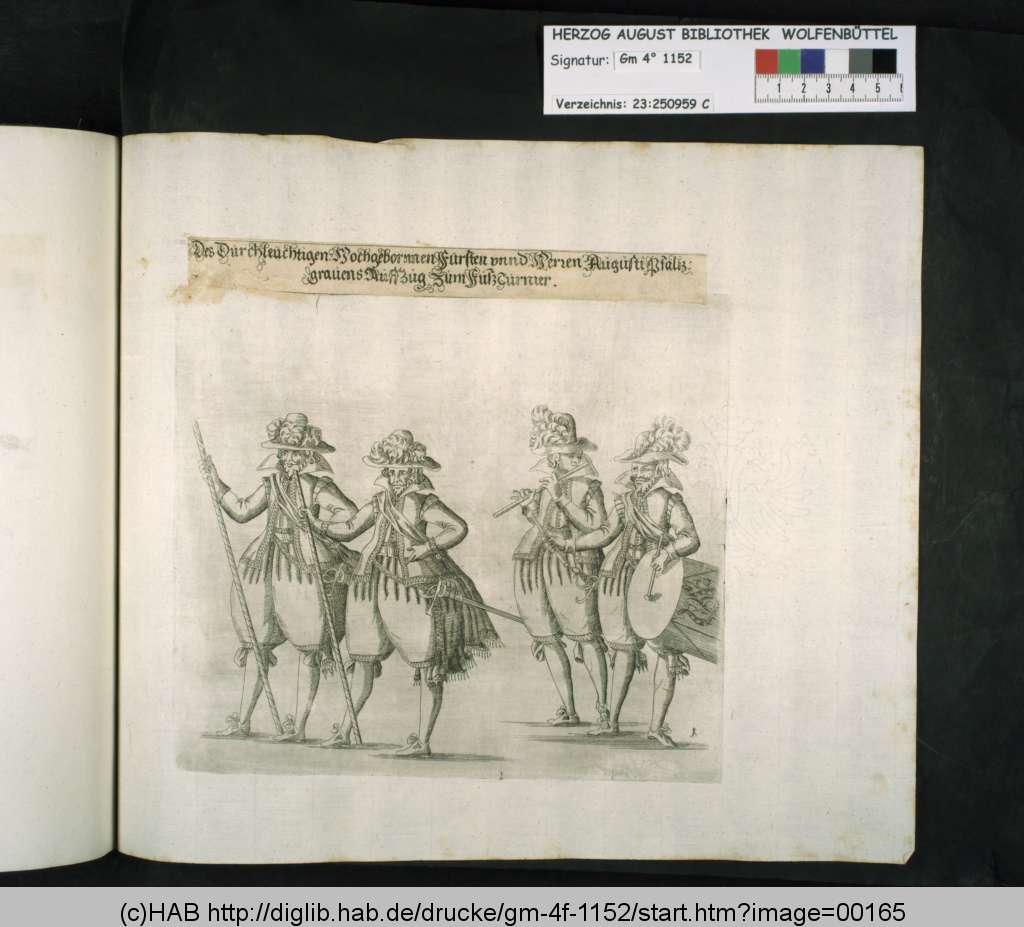 HERZOG AUGUST BIBLIOTHEK WOLFENBÜTTEL
Signatur: Gm 4° 1152
1 2 3 4 5 6
Verzeichnis: 23:250959 C
Des Durchleuchtigen Hochgebornnen Fürsten vnnd Herren Augusti Pfaltz:
grauens Auffzug Zum Fußturnier.
1
(c)HAB http://diglib.hab.de/drucke/gm-4f-1152/start.htm?image=00165